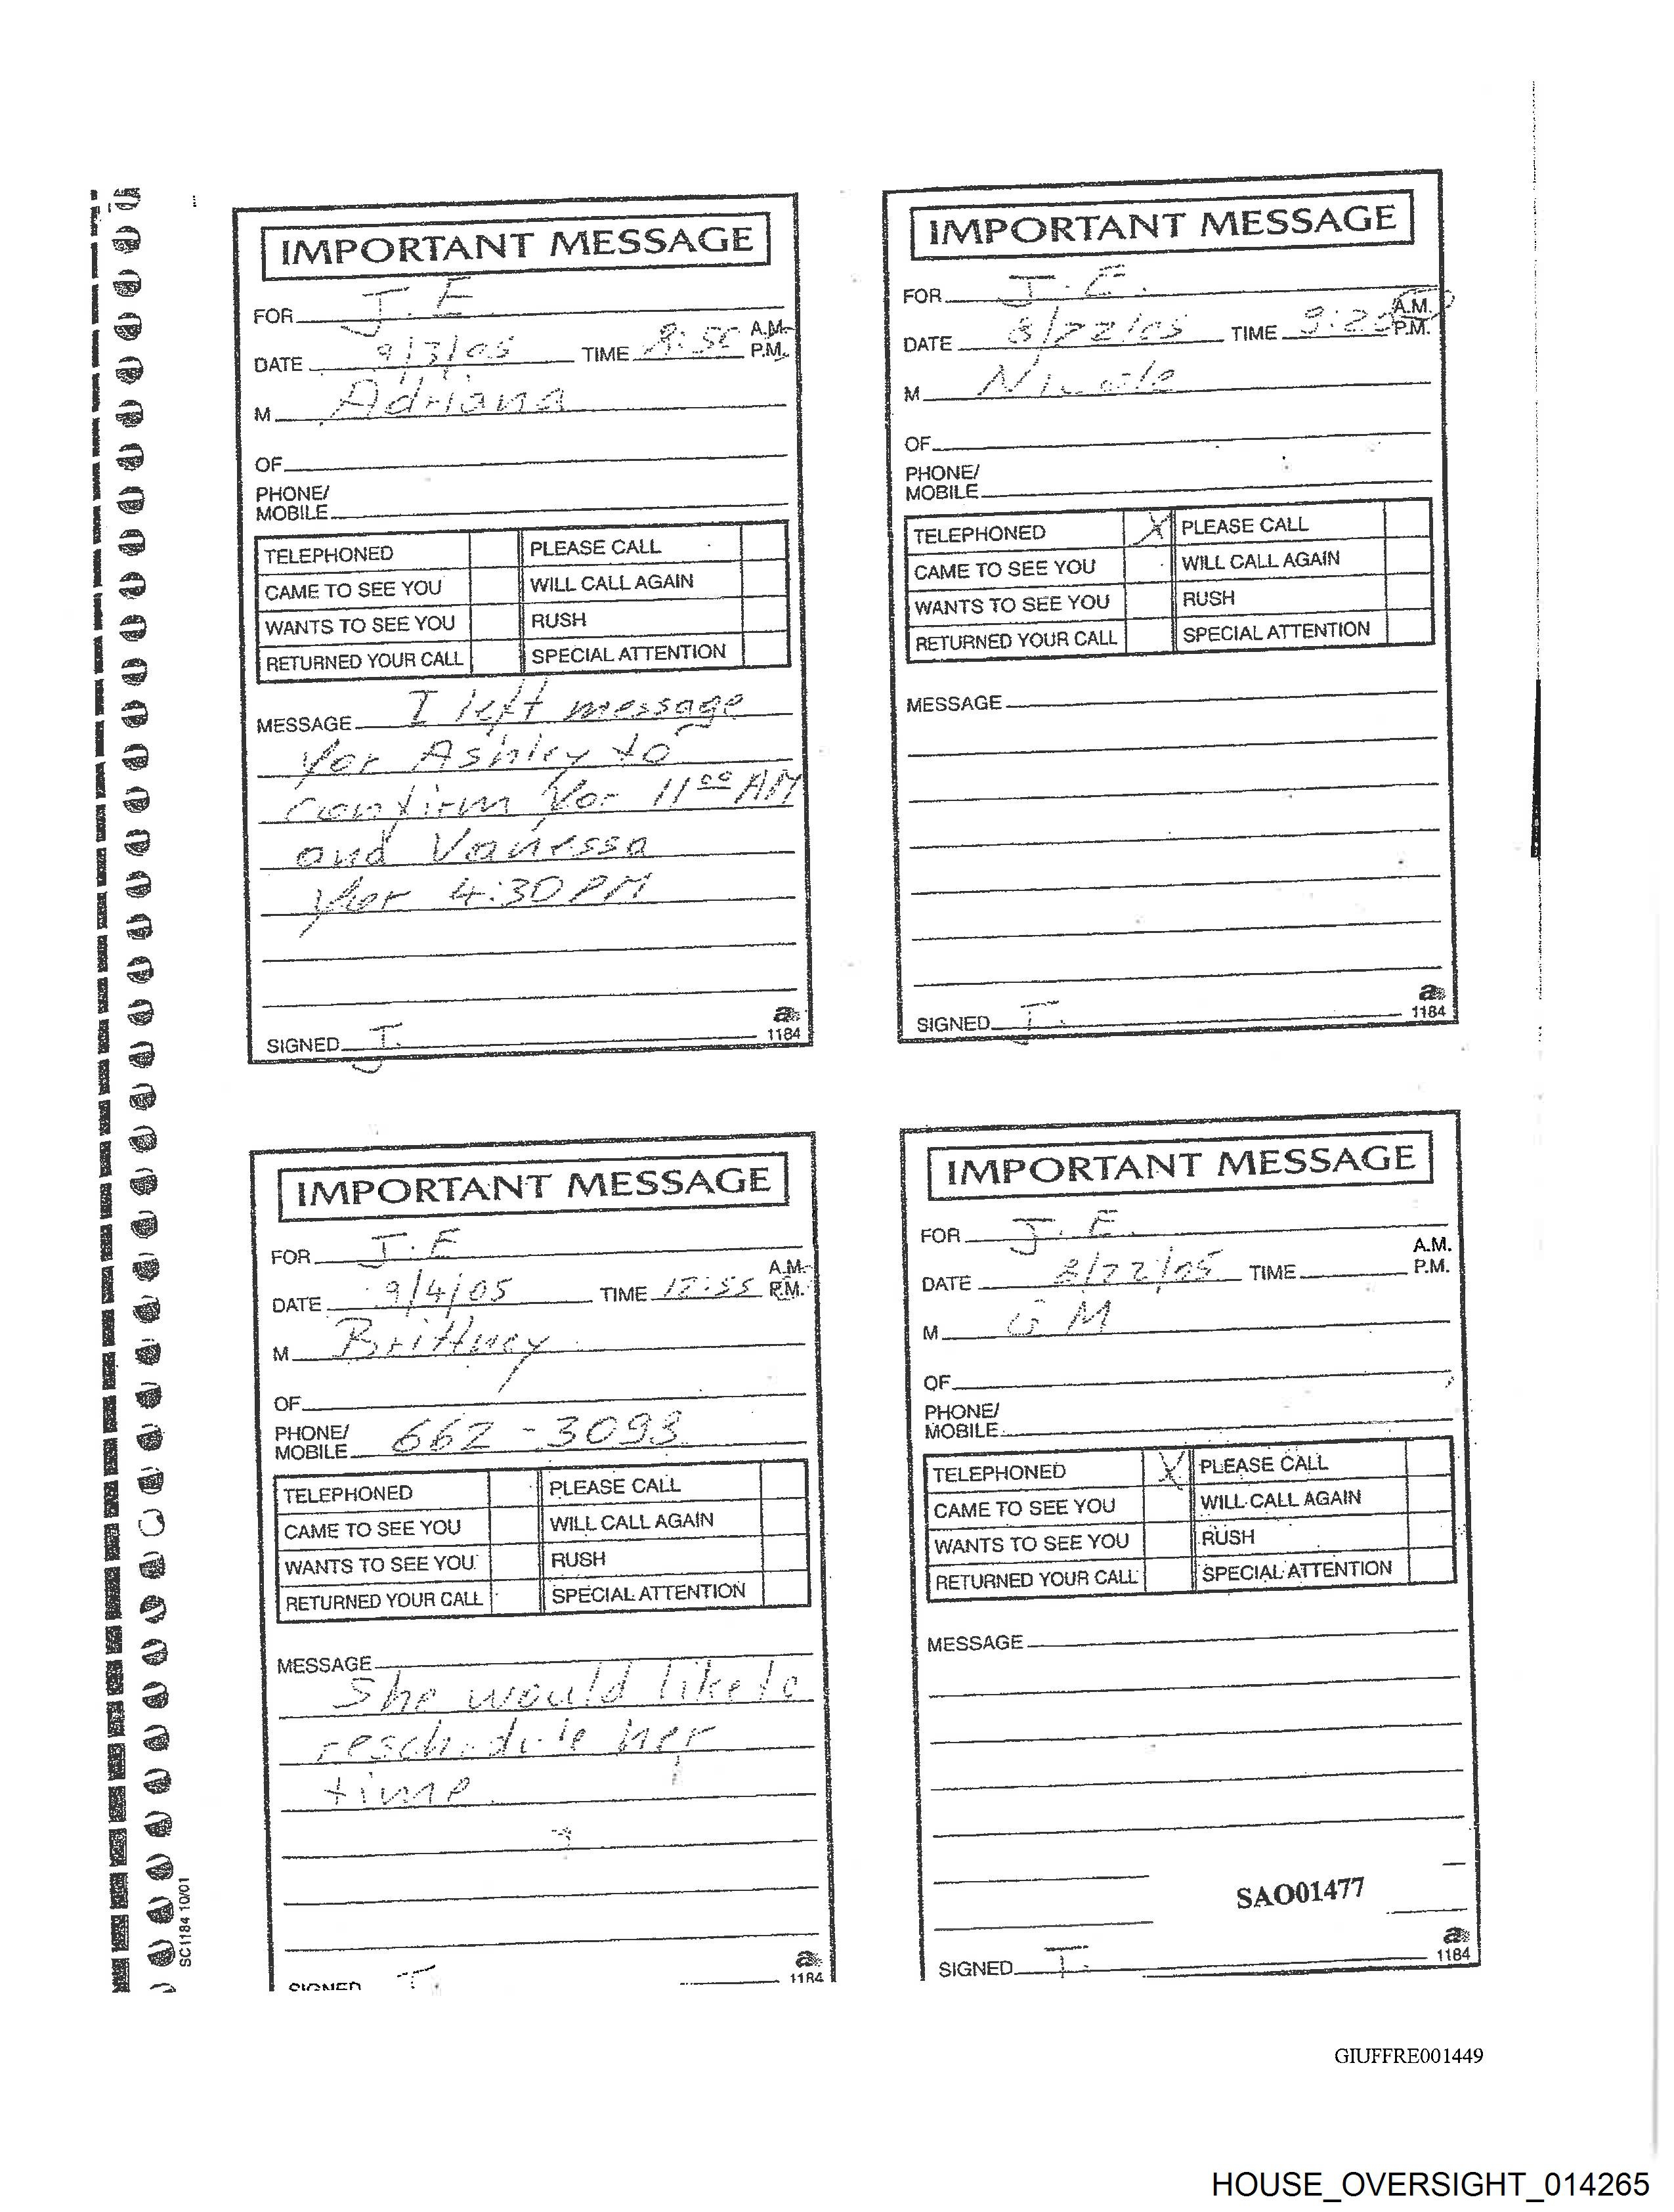 IMPORTANT MESSAGE
FOR J.E
DATE 9/3/05 TIME 8:50 A.M. P.M.
M Adriana
OF
PHONE/
MOBILE
TELEPHONED PLEASE CALL
CAME TO SEE YOU WILL CALL AGAIN
WANTS TO SEE YOU RUSH
RETURNED YOUR CALL SPECIAL ATTENTION
MESSAGE I left message
for Ashley to
confirm for 11 00 AM
and Vanessa
for 4:30 PM
SIGNED J.
a
1184
IMPORTANT MESSAGE
FOR J.E.
DATE 8/22/05 TIME A.M. P.M.
M Nicole
OF
PHONE/
MOBILE
TELEPHONED X PLEASE CALL
CAME TO SEE YOU WILL CALL AGAIN
WANTS TO SEE YOU RUSH
RETURNED YOUR CALL SPECIAL ATTENTION
MESSAGE
SIGNED J.
a
1184
IMPORTANT MESSAGE
FOR J.E
DATE 9/4/05 TIME 12:55 A.M. P.M.
M Brittney
OF
PHONE/
MOBILE 662-3093
TELEPHONED PLEASE CALL
CAME TO SEE YOU WILL CALL AGAIN
WANTS TO SEE YOU RUSH
RETURNED YOUR CALL SPECIAL ATTENTION
MESSAGE
She would like to
reschedule her
time.
SIGNED J.
a
1184
IMPORTANT MESSAGE
FOR J.E.
DATE 8/22/05 TIME A.M. P.M.
M GM
OF
PHONE/
MOBILE
TELEPHONED X PLEASE CALL
CAME TO SEE YOU WILL CALL AGAIN
WANTS TO SEE YOU RUSH
RETURNED YOUR CALL SPECIAL ATTENTION
MESSAGE
SAO01477
SIGNED J.
a
1184
SC1184 10/01
GIUFFRE001449
HOUSE_OVERSIGHT_014265